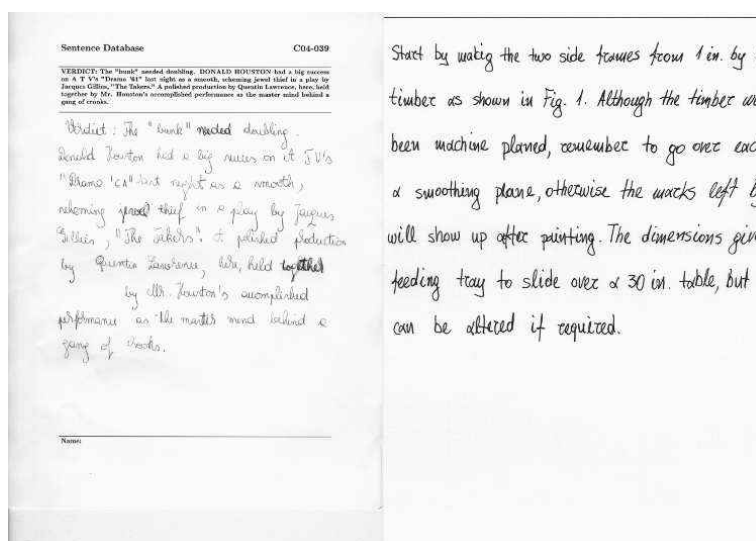 Sentence Database C04-039
VERDICT: The "bunk" needed doubling. DONALD HOUSTON had a big success
on A T V's "Drama '61" last night as a smooth, scheming jewel thief in a play by
Jacques Gillies, "The Takers." A polished production by Quentin Lawrence, here, held
together by Mr. Houston's accomplished performance as the master mind behind a
gang of crooks.
Verdict : The "bunk" needed doubling.
Donald Houston had a big succes on A TV's
"Drama last night as a smooth,
scheming jewel thief in a play by Jaques
Gillies, "The Takers". A polished production
by Quentin Lawrence, here, held together
by Mr. Houston's accomplished
performance as the master mind behind a
gang of crooks.
Name:
Start by makig the two side frames from 1 in. by
timber as shown in Fig. 1. Although the timber
been machine planed, remember to go over
a smoothing plane, otherwise the marks left
will show up after painting. The dimensions
feeding tray to slide over a 30 in. table, but
can be altered if required.